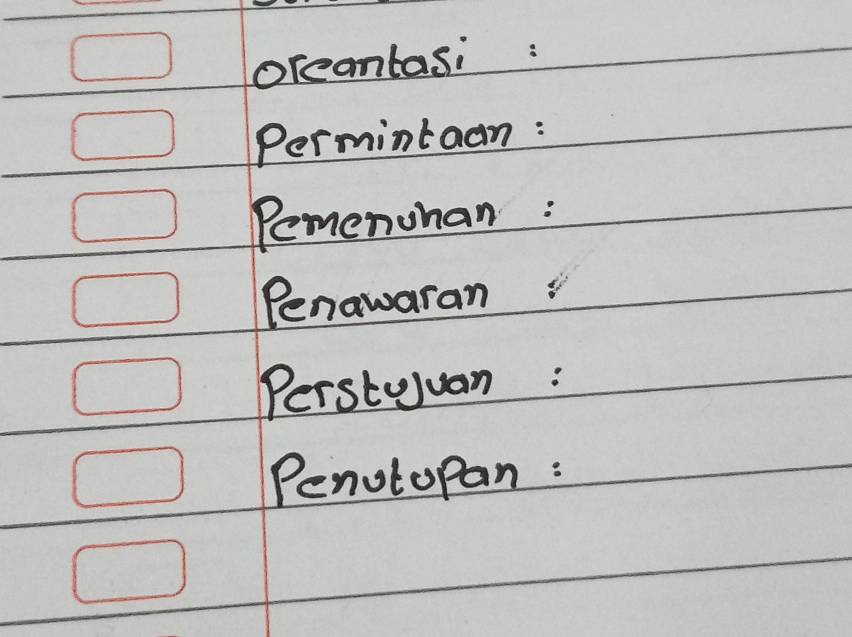 oreantasi :
Permintaan :
Pemenuhan :
Penawaran :
Perstujuan :
Penutupan :